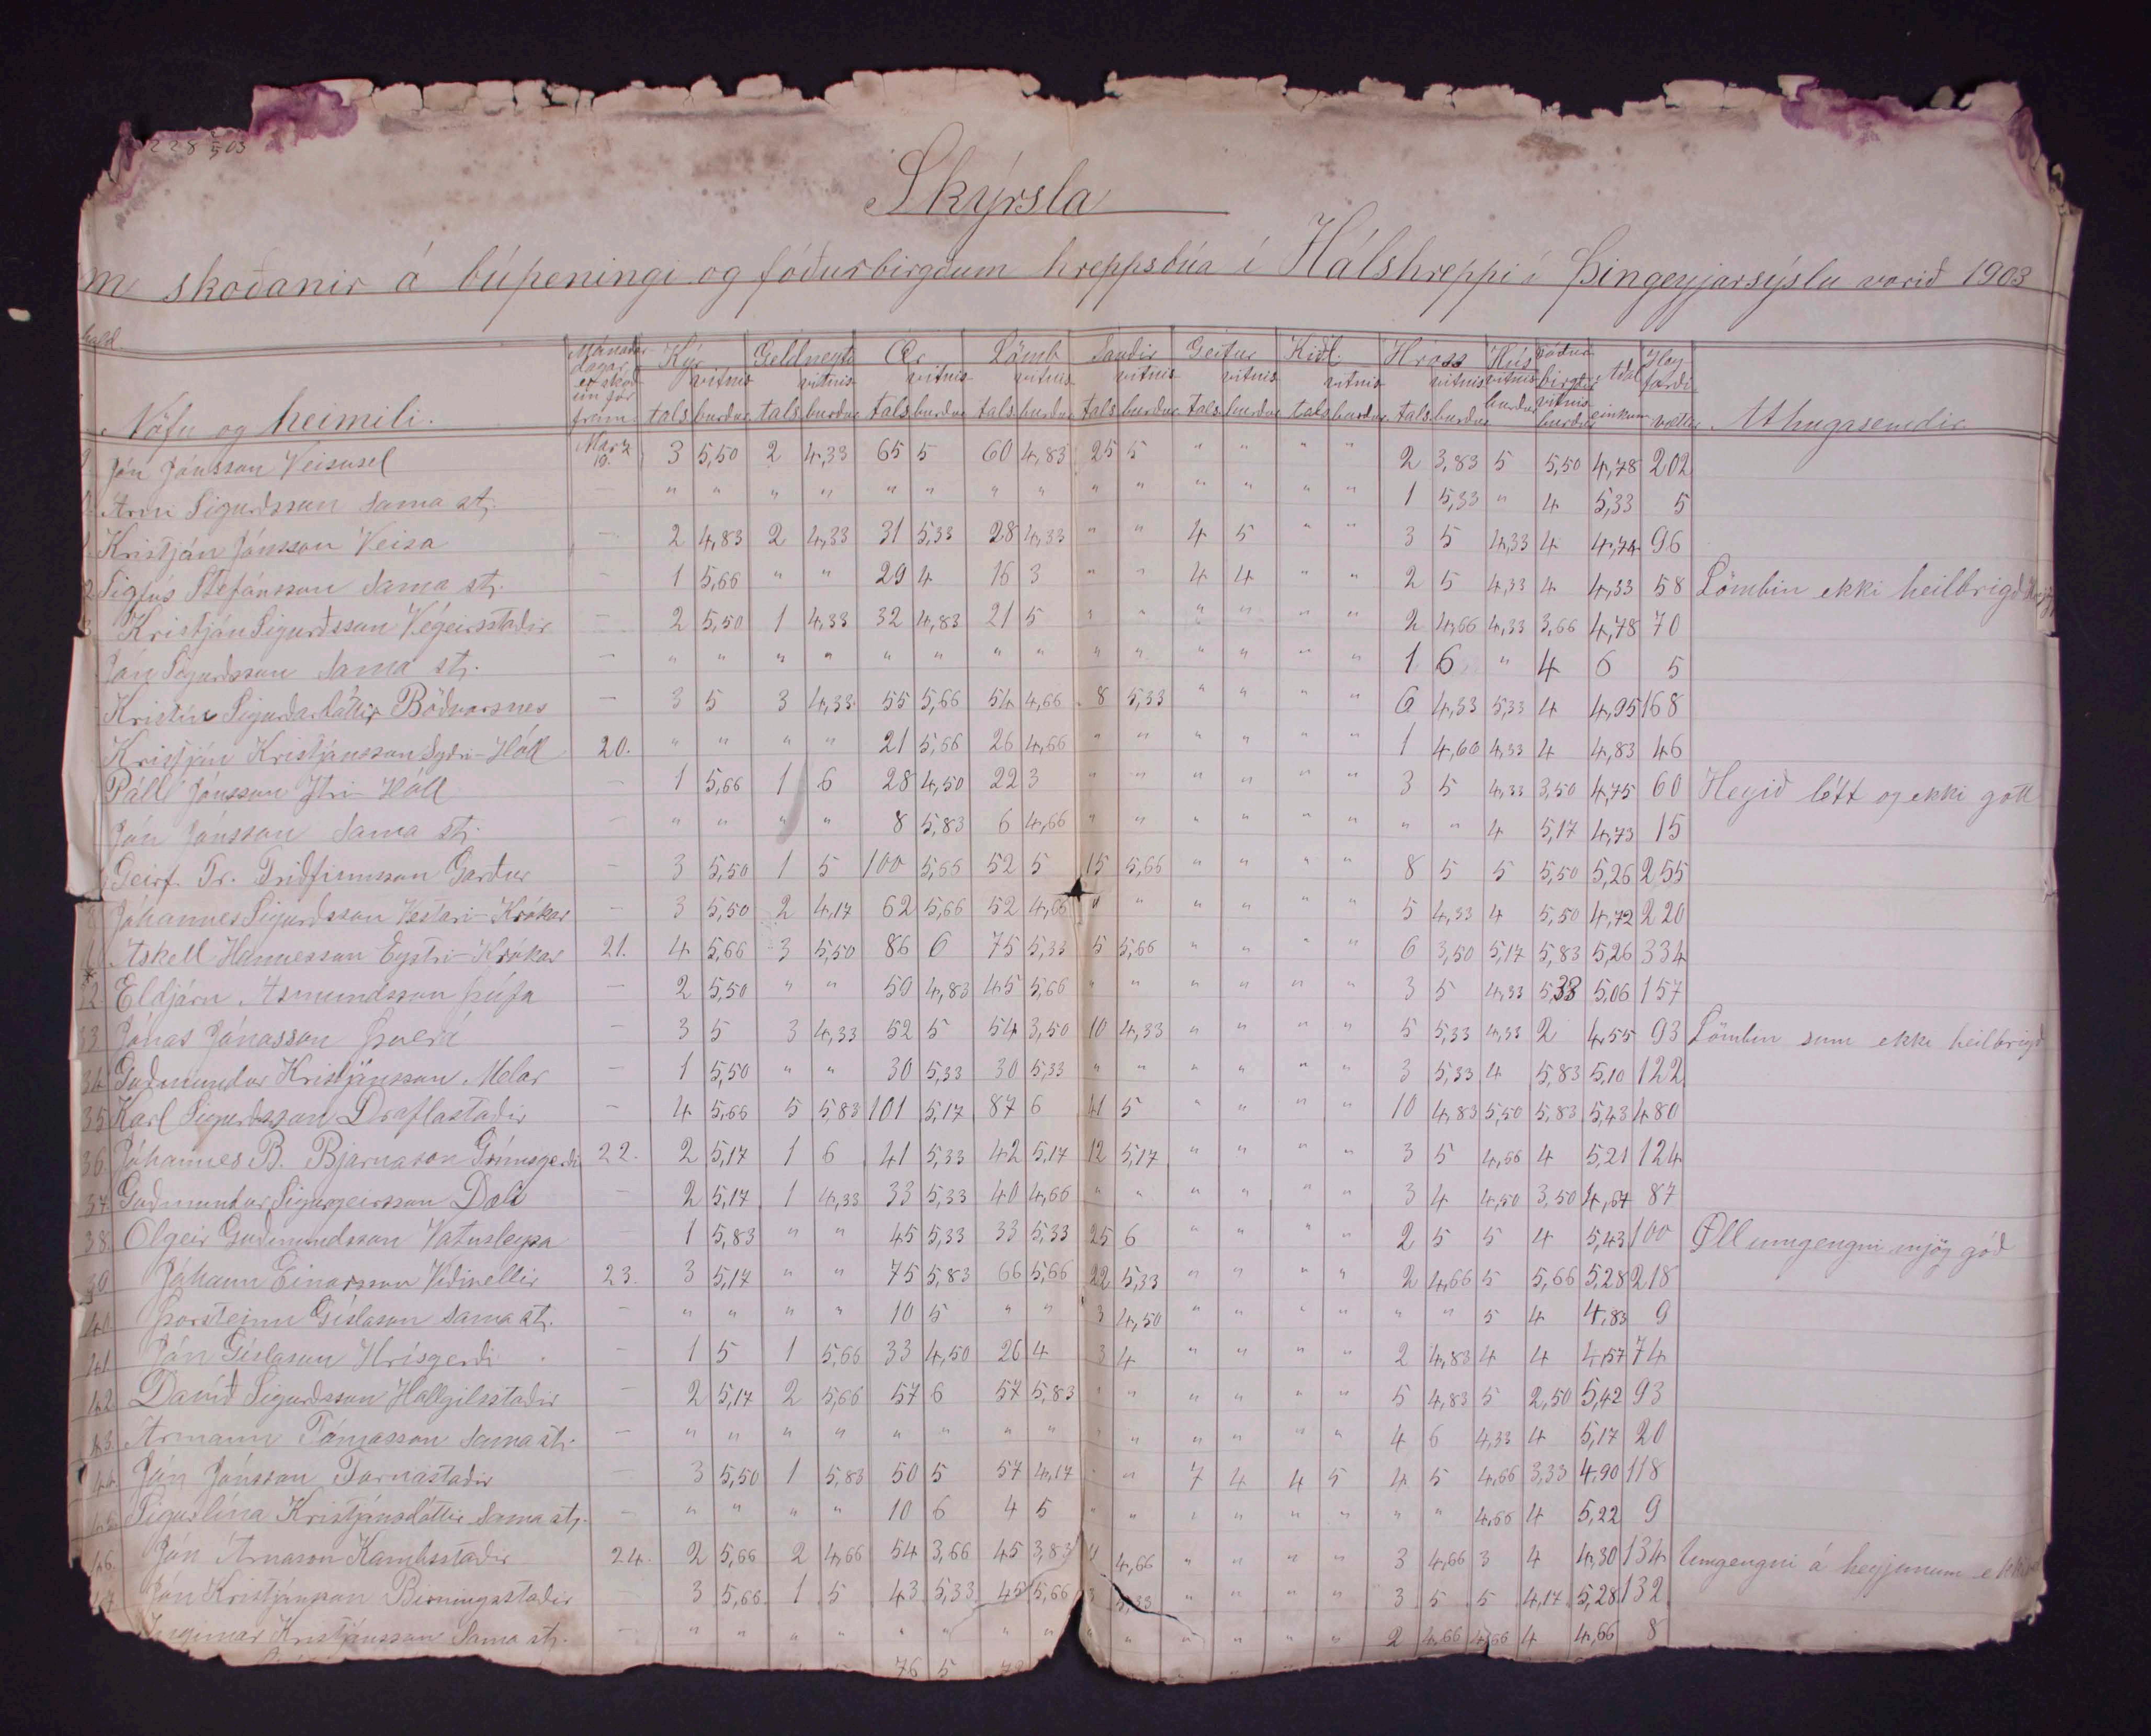 228 5/5 03
Skýrsla
m skoðanir á búpeningi og fóðurbirgðum hreppsbúa í Hálshreppi í Þingeyjarsýslu vorið 1903
Nöfn og heimili. Mánaðar dagar, er skoðun fór fram. Kýr Geldneyti Ær Lömb Sauðir Geitur Kiðl. Hross Hús fóður birgðir Aðal einkunn Hey forði Athugasemdir
tals vitnisburður tals vitnisburður tals vitnisburður tals vitnisburður tals vitnisburður tals vitnisburður tals vitnisburður tals vitnisburður vitnisburður vitnisburður
Jón Jónsson Veisusel Marz 19. 3 5,50 2 4,33 65 5 60 4,83 25 5 " " " " 2 3,83 5 5,50 4,78 202
Árni Sigurðsson Sama st. — " " " " " " " " " " " " " " 1 5,33 " 4 5,33 5
Kristján Jónsson Veisa — 2 4,83 2 4,33 31 5,33 28 4,33 " " 4 5 " " 3 5 4,33 4 4,74 96
Sigfús Stefánsson Sama st. — 1 5,66 " " 29 4 16 3 " " 4 4 " " 2 5 4,33 4 4,33 58 Lömbin ekki heilbrigð
Kristján Sigurðsson Végeirsstaðir — 2 5,50 1 4,33 32 4,83 21 5 " " " " " " 2 4,66 4,33 3,66 4,78 70
Jón Sigurðsson Sama st. — " " " " " " " " " " " " " " 1 6 " 4 6 5
Kristín Sigurðardóttir Böðvarsnes — 3 5 3 4,33 55 5,66 54 4,66 8 5,33 " " " " 6 4,33 5,33 4 4,95 168
Kristján Kristjánsson Syðri-Hóll 20. " " " " 21 5,66 26 4,66 " " " " " " 1 4,60 4,33 4 4,83 46
Páll Jónsson Ytri-Hóll — 1 5,66 1 6 28 4,50 22 3 " " " " " " 3 5 4,33 3,50 4,75 60 Heyið létt og ekki gott
Jón Jónsson Sama st. — " " " " 8 5,83 6 4,66 " " " " " " " " 4 5,17 4,73 15
Geirf. Tr. Friðfinnsson Garður — 3 5,50 1 5 100 5,66 52 5 15 5,66 " " " " 8 5 5 5,50 5,26 255
Jóhannes Sigurðsson Vestari-Krókar — 3 5,50 2 4,17 62 5,66 52 4,66 " " " " " " 5 4,33 4 5,50 4,72 220
Áskell Hannesson Eystri-Krókar 21. 4 5,66 3 5,50 86 6 75 5,33 5 5,66 " " " " 6 3,50 5,17 5,83 5,26 334
32 Eldjárn Ásmundsson Þúfa — 2 5,50 " " 50 4,83 45 5,66 " " " " " " 3 5 4,33 5,33 5,06 157
33 Jónas Jónasson Þverá — 3 5 3 4,33 52 5 54 3,50 10 4,33 " " " " 5 5,33 4,33 2 4,55 93 Lömbin sum ekki heilbrigð
34 Guðmundur Kristjánsson Melar — 1 5,50 " " 30 5,33 30 5,33 " " " " " " 3 5,33 4 5,83 5,10 122
35 Karl Sigurðsson Draflastaðir — 4 5,66 5 5,83 101 5,17 87 6 41 5 " " " " 10 4,83 5,50 5,83 5,43 480
36. Jóhannes B. Bjarnason Grímsgerði 22. 2 5,17 1 6 41 5,33 42 5,17 12 5,17 " " " " 3 5 4,66 4 5,21 124
37 Guðmundur Sigurgeirsson Dali — 2 5,17 1 4,33 33 5,33 40 4,66 " " " " " " 3 4 4,50 3,50 4,67 87
38. Olgeir Guðmundsson Vatnsleysa 1 5,83 " " 45 5,33 33 5,33 25 6 " " " " 2 5 5 4 5,43 100 Öll umgengni mjög góð
39 Jóhann Einarsson Víðivellir 23. 3 5,17 " " 75 5,83 66 5,66 22 5,33 " " " " 2 4,66 5 5,66 5,28 218
40 Þorsteinn Gíslason Sama st. — " " " " 10 5 " " 3 4,50 " " " " " " 5 4 4,83 9
41 Ján Gíslason Hrísgerði — 1 5 1 5,66 33 4,50 26 4 3 4 " " " " 2 4,83 4 4 4,57 74
42. Davíð Sigurðsson Hallgilsstaðir — 2 5,17 2 5,66 57 6 57 5,83 " " " " " " 5 4,83 5 2,50 5,42 93
43. Ármann Tómasson Sama st. — " " " " " " " " " " " " " " 4 6 4,33 4 5,17 20
44. Jón Jónsson Tarnastaðir — 3 5,50 1 5,83 50 5 57 4,17 " " 7 4 4 5 4 5 4,66 3,33 4,90 118
45. Sigurlína Kristjánsdóttir Sama st. — " " " " 10 6 4 5 " " " " " " " " 4,66 4 5,22 9
46. Jón Árnason Kambsstaðir 24. 2 5,66 2 4,66 54 3,66 45 3,83 4,66 " " " " 3 4,66 3 4 4,30 134 Umgengni á heyjunum
47 Jón Kristjánsson Birningsstaðir — 3 5,66 1 5 43 5,33 45 5,66 3 5,33 " " " " 3 5 5 4,17 5,28 132
Ingimar Kristjánsson Sama st. — " " " " " " " " " " " " " " 2 4,66 4,66 4 4,66 8
76 5 78